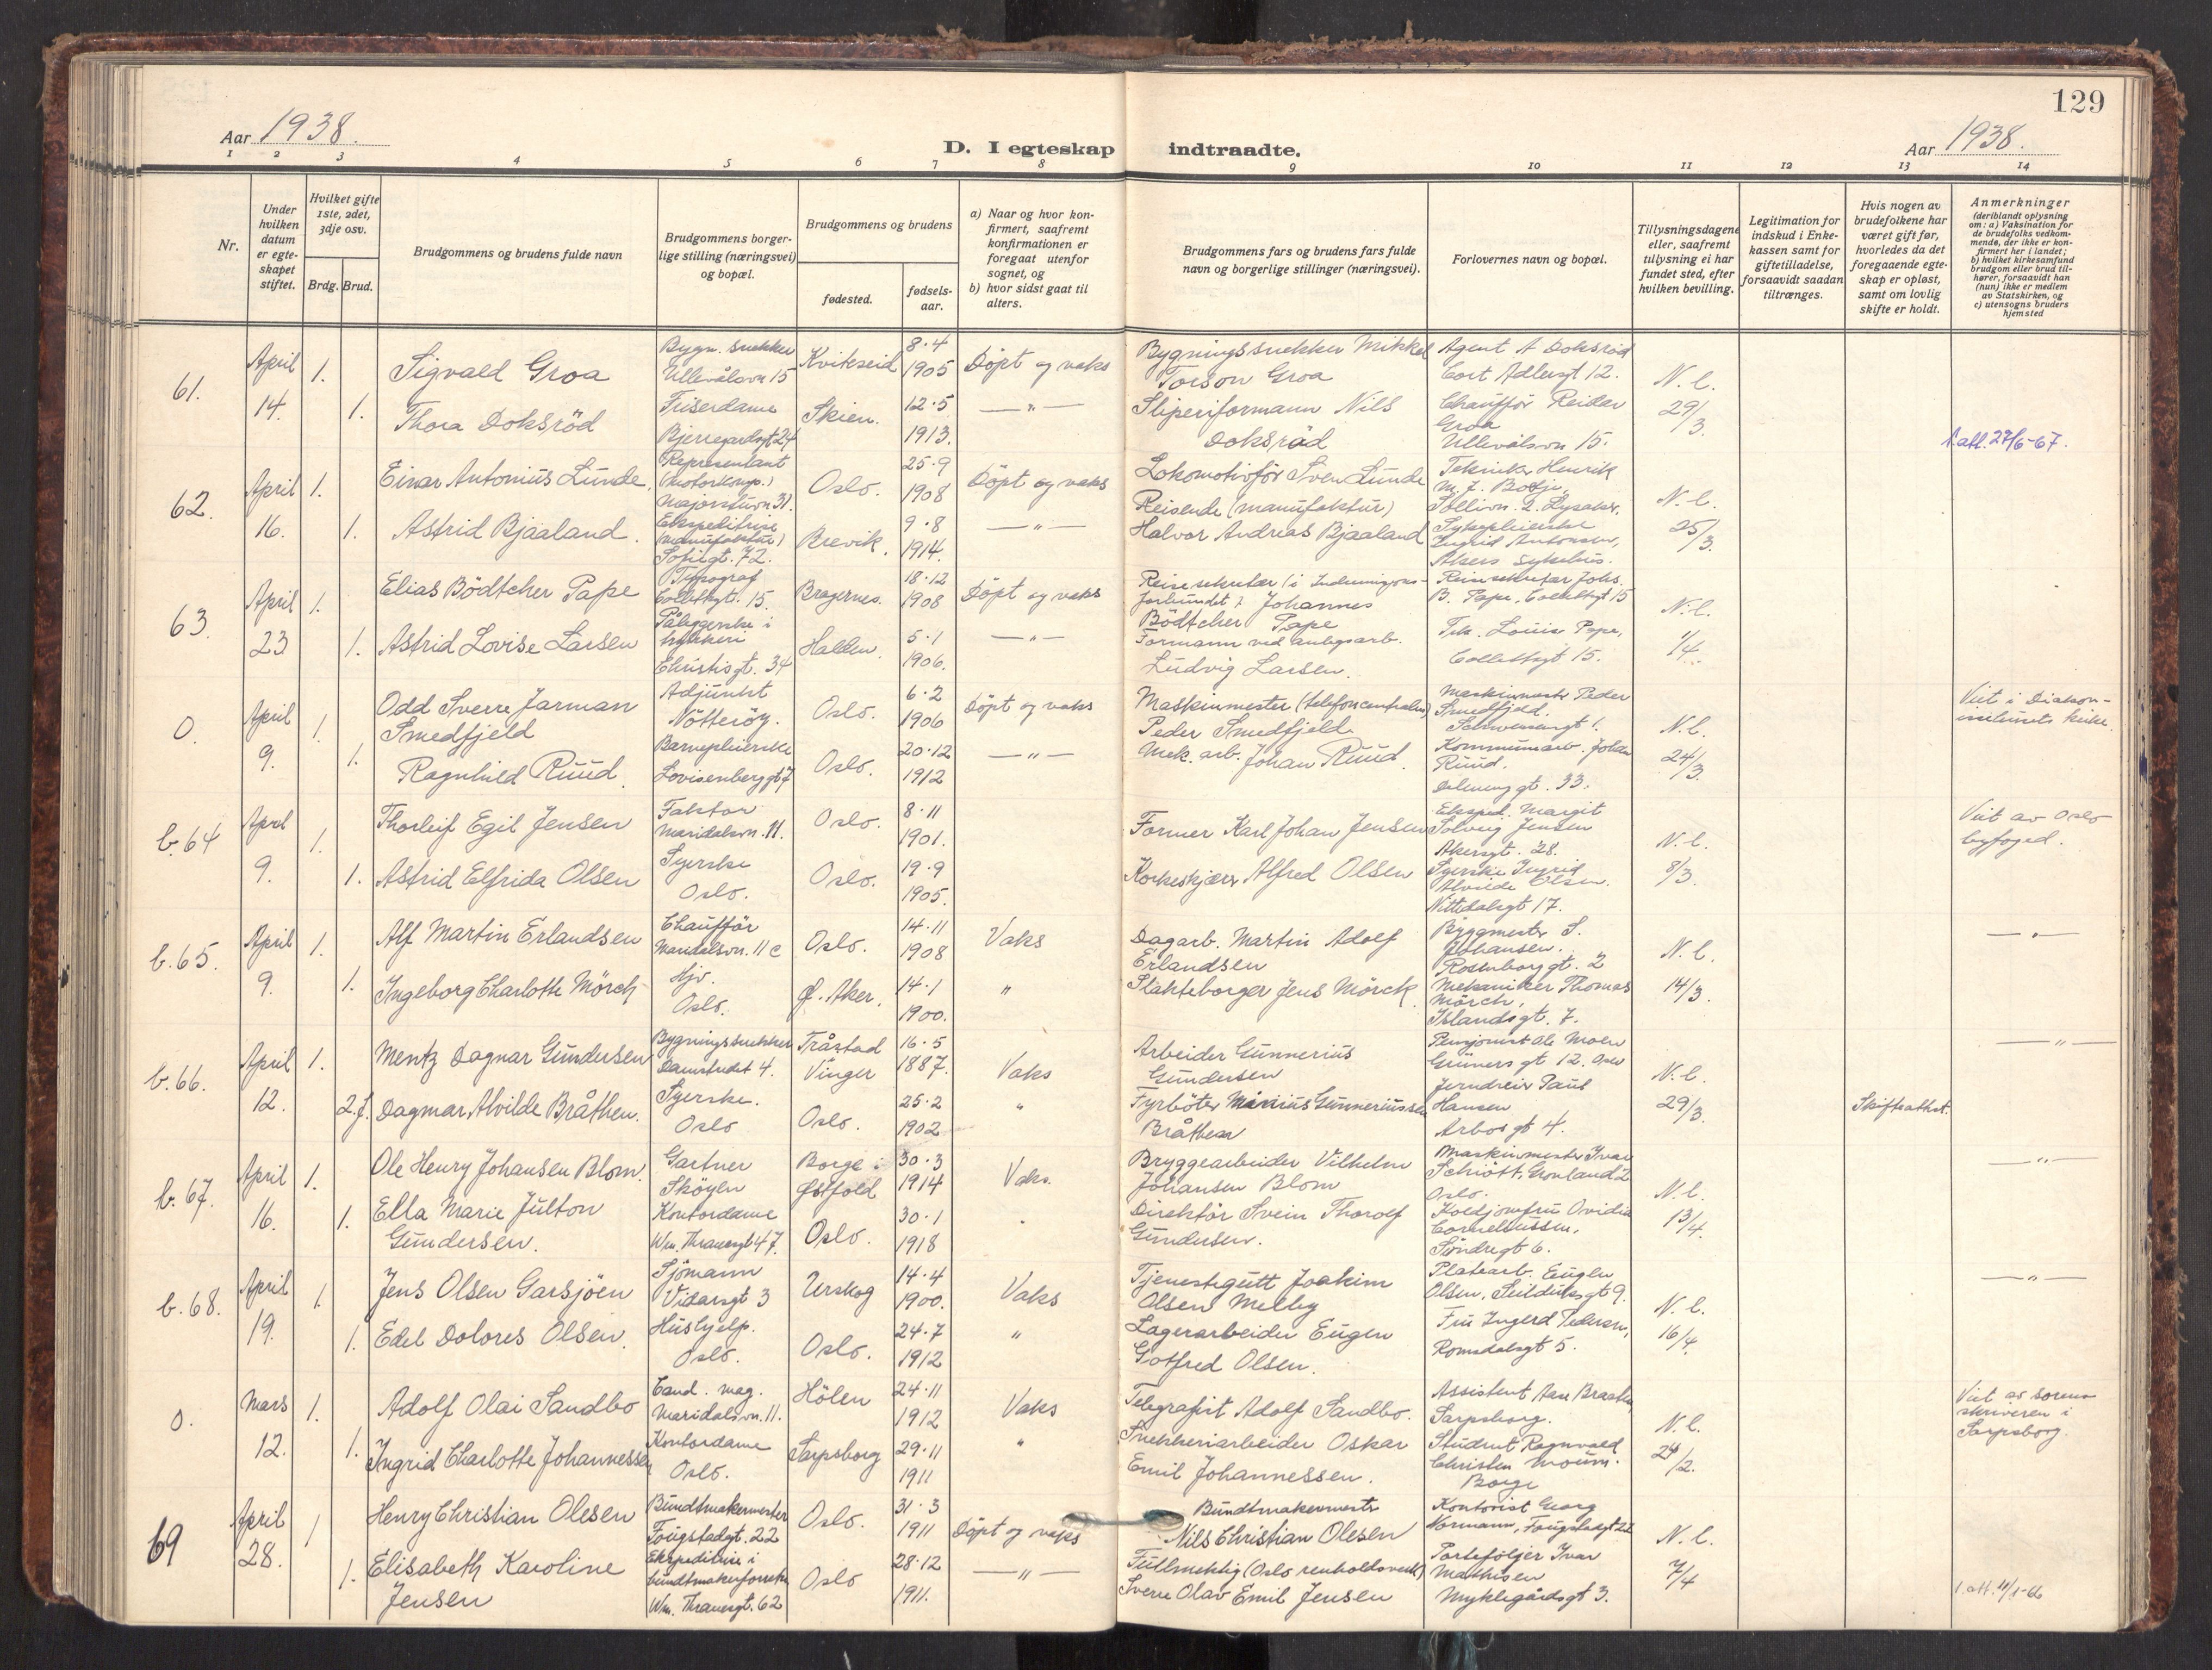 129
Aar 1938.
D. I egteskap indtraadte.
Aar 1938.
1 2 3 4 5 6 7 8 9 10 11 12 13 14
Nr.
Under hvilken datum er egteskapet stiftet.
Hvilket gifte 1ste, 2det, 3dje osv.
Brdg. Brud.
Brudgommens og brudens fulde navn
Brudgommens borgerlige stilling (næringsvei) og bopæl.
Brudgommens og brudens
fødested.
fødselsaar.
a) Naar og hvor konfirmert, saafremt konfirmationen er foregaat utenfor sognet, og
b) hvor sidst gaat til alters.
Brudgommens fars og brudens fars fulde navn og borgerlige stillinger (næringsvei).
Forlovernes navn og bopæl.
Tillysningsdagene eller, saafremt tillysning ei har fundet sted, efter hvilken bevilling.
Legitimation for indskud i Enkekassen samt for giftetilladelse, forsaavidt saadan tiltrænges.
Hvis nogen av brudefolkene har været gift før, hvorledes da det foregaaende egteskap er opløst, samt om lovlig skifte er holdt.
Anmerkninger (deriblandt oplysning om: a) Vaksination for de brudefolks vedkommende, der ikke er konfirmert her i landet; b) hvilket kirkesamfund brudgom eller brud tilhører, forsaavidt han (hun) ikke er medlem av Statskirken, og c) utensogns bruders hjemsted
61. April 14. 1. Sigvald Groa
Bygn. snekker Ullevålsvn 15
Kviteseid 8.4 1905 Döpt og vaks
Bygningssnekker Mikkel Torson Groa
Agent A Doksröd Cort Adlersgt 12.
N.b. 29/3.
1. Thora Doksröd
Friserdame Bjerregardsgt 24
Skien. 12.5 1913. — " —
Sliperiformann Nils Doksröd
Chauffør Reidar Groa Ullevålsvn 15.
1 att. 27/6-67.
62. April 16. 1. Einar Antonius Lunde,
Representant (motorkomp.) Majorstuvn 31.
Oslo. 25.9 1908 Döpt og vaks
Lokomotivför Sven Lunde
Tekniker Henrik M. J. Sollivn. 2. Lysaker.
N.b. 25/3.
1. Astrid Bjaaland.
Ekspeditrise (manufaktur) Sofiigt. 72.
Brevik. 9.8 1914. — " —
Reisende (manufaktur) Halvor Andreas Bjaaland
Sykepleierske Ingrid Antonsen, Akers sykehus.
63. April 23 1. Elias Bödtcher Pape
Typograf Collettsgt. 15.
Bragernes. 18.12 1908 Döpt og vaks
Reisesekretær (i Indremisjonsforbundet) Johannes Bödtcher Pape
Reisesekretær Johs. B. Pape, Collettsgt 15
N.b. 1/4.
1. Astrid Lovise Larsen
Påleggerske i trykkeri Christisgt. 34
Halden. 5.1 1906. — " —
Formann ved anlegsarb. Ludvig Larsen.
Tek. Louise Pape, Collettsgt 15.
0. April 9. 1. Odd Sverre Jarman Smedfjeld
Adjunkt Nötteröy.
Oslo. 6.2 1906 Döpt og vaks
Maskinmester (telefoncentralen) Peder Smedfjeld
Maskinmester Peder Smedfjeld. Schwensengt 1.
N.b. 24/3.
Viet i Diakonissehusets kirke.
1. Ragnhild Ruud.
Barnepleierske Lovisenberggt 7
Oslo. 20.12 1912 — " —
Mek. arb. Johan Ruud.
Kommunearb. Johan Ruud. Dælenenggt. 33.
b.64 April 9. 1. Thorleif Egil Jensen
Faktor Maridalsvn. 11.
Oslo. 8.11 1901.
Former Karl Johan Jensen
Eksped. Margit Solveig Jensen Akersgt. 28.
N.b. 8/3.
Viet av Oslo byfoged.
1. Astrid Elfrida Olsen
Syerske Oslo.
Oslo. 19.9 1905.
Korkeskjærer Alfred Olsen
Syerske Ingrid Alvilde Olsen. Nittedalsgt 17.
b.65. April 9. 1. Alf Martin Erlandsen
Chauffør Maridalsvn. 11 c
Oslo. 14.11 1908 Vaks
Dagarb. Martin Adolf Erlandsen
Byggmester S. Johansen. Rosenborggt. 2
N.b. 14/3.
— " —
1. Ingeborg Charlotte Mörch
Hjv. Oslo.
Ø. Aker. 14.1 1900. "
Slakteborger Jens Mörck
Mekaniker Thomas Mörch, Islandsgt. 7.
b.66. April 12. 1. Mentz Dagnar Gundersen
Bygningssnekker Damstredet 4.
Tråstad Vinger 16.5 1887. Vaks
Arbeider Gunnerius Gundersen
Pensjonist Ole Moen Grünersgt 12. Oslo
N.b. 29/3.
— " —
2.f. Dagmar Alvilde Bråthen.
Syerske. Oslo
Oslo. 25.2 1902 "
Fyrböter Marius Gunneriussen Bråthen
Jerndreier Paul Hansen Arbosgt 4.
Skifteattest.
b.67. April 16. 1. Ole Henry Johansen Blom.
Gartner Sköyen
Borge i Østfold 30.3 1914 Vaks.
Bryggearbeider Vilhelm Johansen Blom
Maskinmester Ivar Schiött, Grønland 2 Oslo.
N.b. 13/4.
— " —
1. Ella Marie Julton Gundersen.
Kontordame Wm. Thranesgt 47.
Oslo. 30.1 1918
Direktör Svein Thorolf Gundersen.
Koldjomfru Ovidia Corneliussen, Söndregt 6.
b.68. April 19. 1. Jens Olsen Garsjöen
Sjömann Vidarsgt 3
Urskog 14.4 1900. Vaks
Tjenestegutt Joakim Olsen Melby
Platearb. Eugen Olsen, Seilduksgt 9.
N.b. 16/4.
— " —
1. Edel Dolores Olsen.
Hushjelp. Oslo.
Oslo. 24.7 1912 "
Lagerarbeider Eugen Gotfred Olsen.
Fru Ingerd Pedersen, Romsdalsgt 5.
0. Mars 12. 1. Adolf Olai Sandbo
Cand. mag. Maridalsvn. 11.
Hölen 24.11 1912 Vaks
Telegrafist Adolf Sandbo.
Assistent Aase Braaten Sarpsborg.
N.b. 24/2.
Viet av sorenskriveren i Sarpsborg.
1. Ingrid Charlotte Johannessen
Kontordame Oslo.
Sarpsborg 29.11 1911 "
Snekkeriarbeider Oskar Emil Johannessen.
Student Ragnvald Christen Moum. Borge
69 April 28. 1 Henry Christian Olesen
Bundtmakermester Fougstadgt. 22
Oslo. 31.3 1911 Döpt og vaks
Bundtmakermester Nils Christian Olesen
Kontorist Georg Normann, Fougstadgt 22
N.b. 7/4
1. Elisabeth Karoline Jensen
Ekspeditrise i bundtmakerforretn. Wm. Thranesgt. 62
Oslo 28.12 1911. — " —
Fullmektig (Oslo renholdsverk) Sverre Olav Emil Jensen
Porteføljer Ivar Mathisen Myklegårdsgt 3.
1. att. 4/1-66